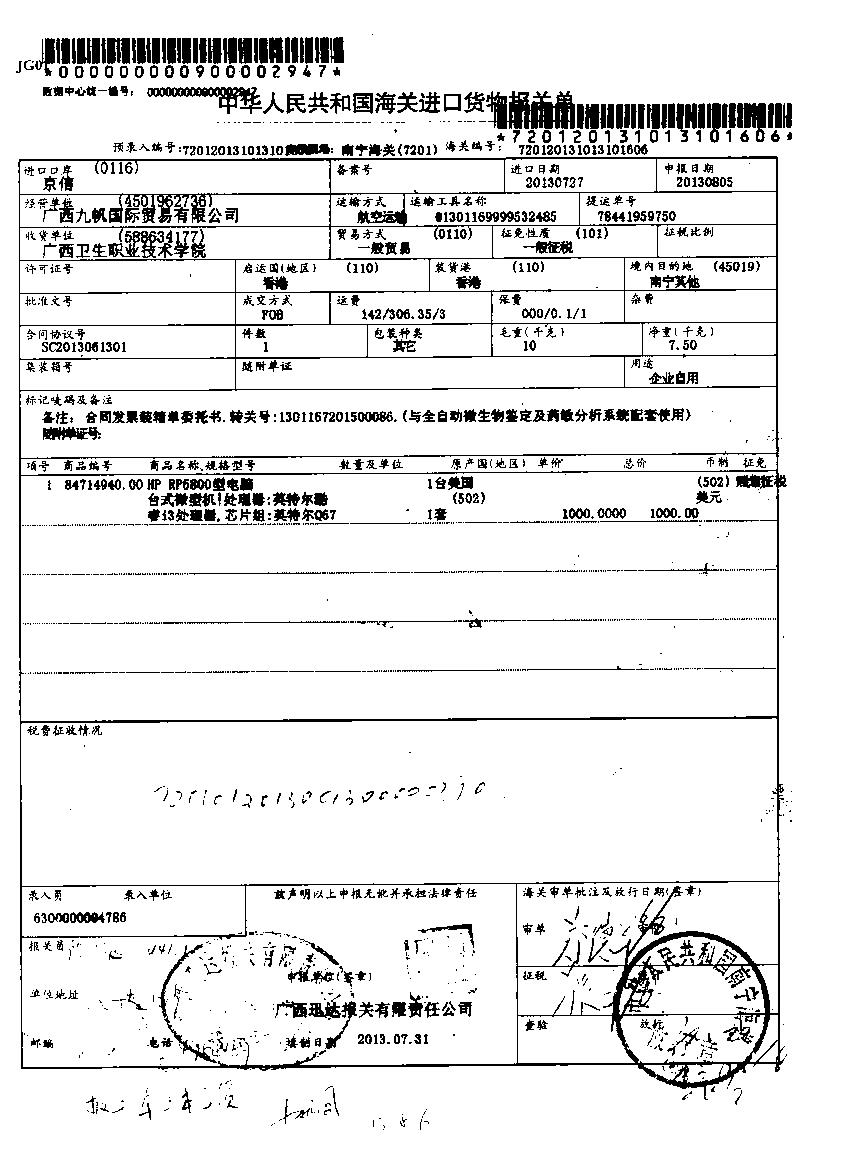 JG01
*000000000900002947*
数据中心统一编号: 000000000900002947
中华人民共和国海关进口货物报关单
*720120131013101606*
预录入编号:72012013101310 南宁海关(7201) 海关编号: 720120131013101606
进口口岸 (0116) 备案号 进口日期 申报日期
京信 20130727 20130805
经营单位 (4501962736) 运输方式 运输工具名称 提运单号
广西九帆国际贸易有限公司 航空运输 @1301169999532485 78441959750
收货单位 (588634177) 贸易方式 (0110) 征免性质 (101) 征税比例
广西卫生职业技术学院 一般贸易 一般征税
许可证号 启运国(地区) (110) 装货港 (110) 境内目的地 (45019)
香港 香港 南宁其他
批准文号 成交方式 运费 保费 杂费
FOB 142/306.35/3 000/0.1/1
合同协议号 件数 包装种类 毛重(千克) 净重(千克)
SC2013061301 1 其它 10 7.50
集装箱号 随附单证 用途
企业自用
标记唛码及备注
备注: 合同发票装箱单委托书.转关号:1301167201500086.(与全自动微生物鉴定及药敏分析系统配套使用)
随附单证号:
项号 商品编号 商品名称、规格型号 数量及单位 原产国(地区) 单价 总价 币制 征免
1 84714940.00 HP RP5800型电脑 1台 美国 (502) 照章征税
台式微型机!处理器:英特尔酷 (502) 美元
睿i3处理器,芯片组:英特尔Q67 1套 1000.0000 1000.00
税费征收情况
录入员 录入单位 兹声明以上申报无讹并承担法律责任 海关审单批注及放行日期(签章)
6300000004786
审单
报关员
申报单位(签章)
征税
单位地址
广西迅达报关有限责任公司
查验 放行
邮编 电话 填制日期 2013.07.31